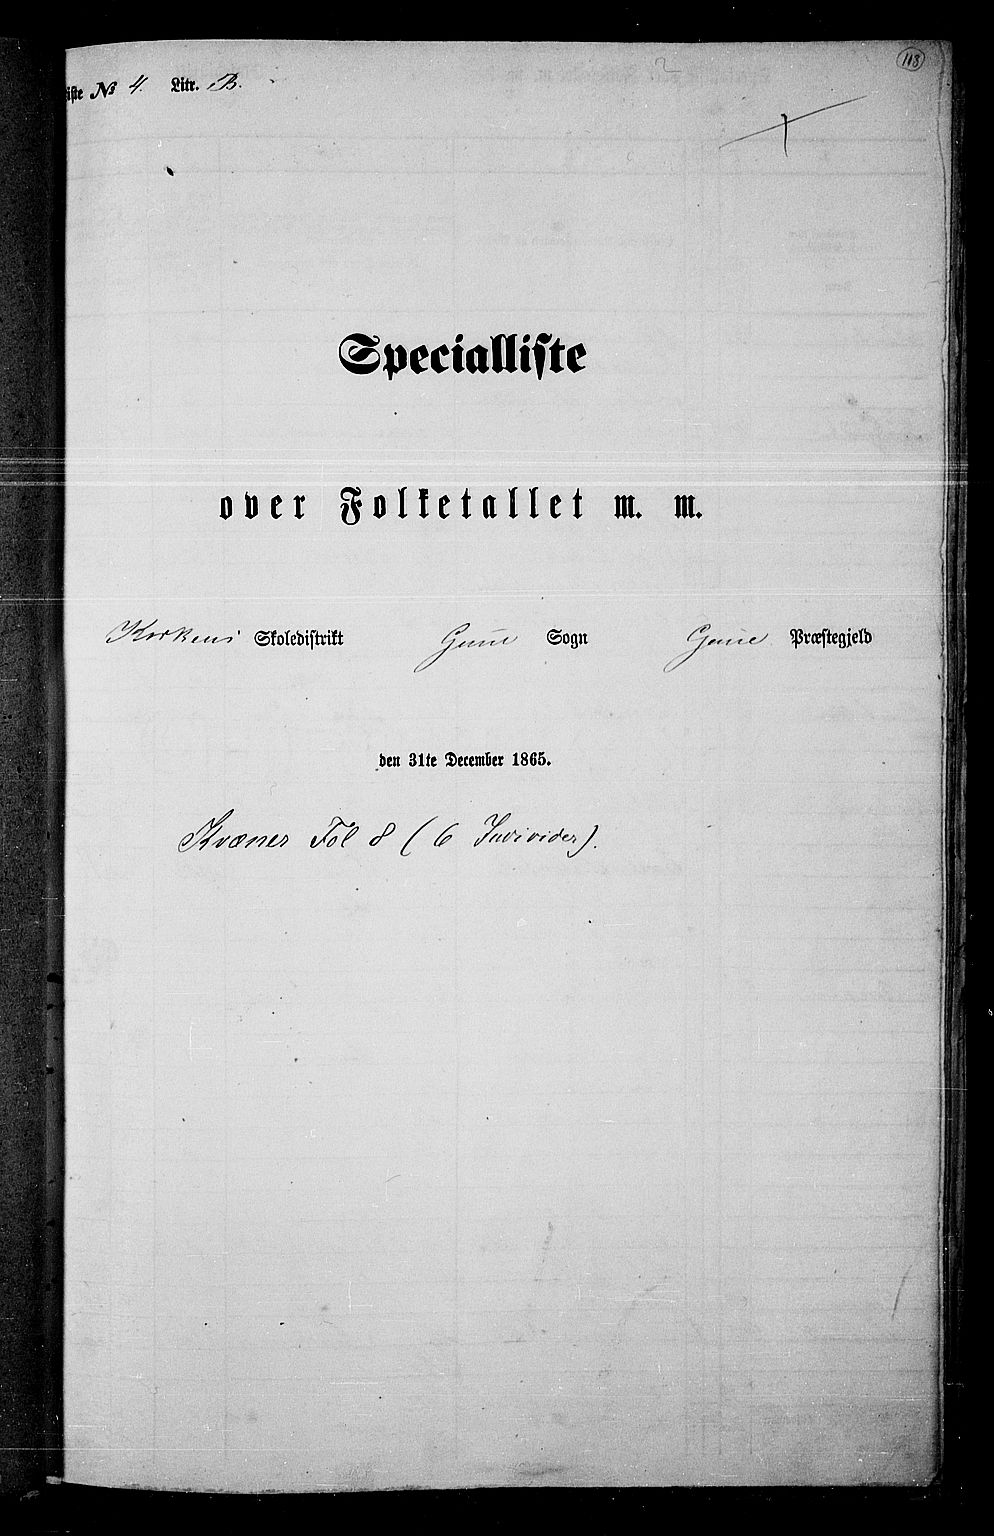 118
iste № 4. Litr. B.
Specialliste
over Folketallet m. m.
Kirkens Skoledistrikt Grue Sogn Grue Præstegjeld
den 31te December 1865.
Kvæner Fol 8 (6 Individer).